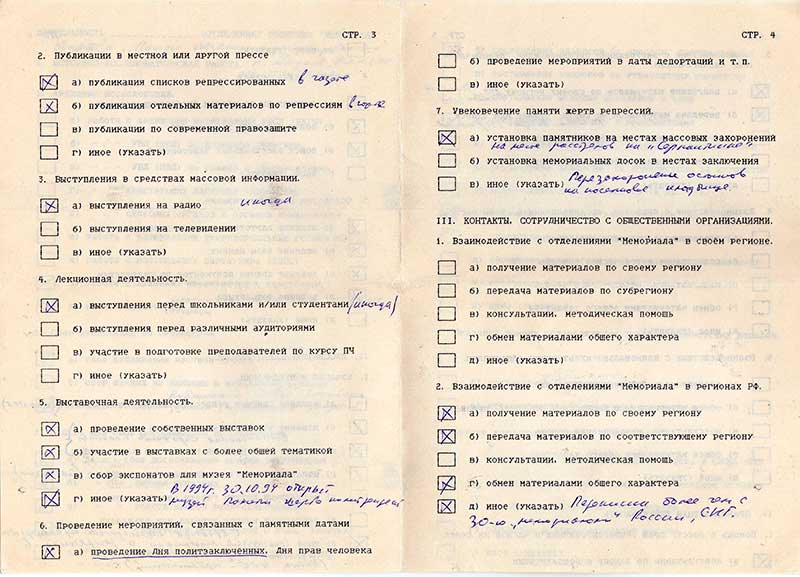 СТР. 3
2. Публикации в местной или другой прессе
☒ а) публикация списков репрессированных в газете
☒ б) публикация отдельных материалов по репрессиям в газете
☐ в) публикации по современной правозащите
☐ г) иное (указать)
3. Выступления в средствах массовой информации.
☒ а) выступления на радио иногда
☐ б) выступления на телевидении
☐ в) иное (указать)
4. Лекционная деятельность.
☒ а) выступления перед школьниками и/или студентами (иногда)
☐ б) выступления перед различными аудиториями
☐ в) участие в подготовке преподавателей по курсу ПЧ
☐ г) иное (указать)
5. Выставочная деятельность.
☒ а) проведение собственных выставок
☒ б) участие в выставках с более общей тематикой
☒ в) сбор экспонатов для музея "Мемориала"
☒ г) иное (указать) В 1994г. 30.10.94 открыт
музей Памяти жертв политрепрессий
6. Проведение мероприятий, связанных с памятными датами
☒ а) проведение Дня политзаключенных. Дня прав человека
СТР. 4
☐ б) проведение мероприятий в даты депортаций и т.п.
☐ в) иное (указать)
7. Увековечение памяти жертв репрессий.
☒ а) установка памятников на местах массовых захоронений
на месте расстрелов на
☐ б) установка мемориальных досок в местах заключения
☐ в) иное (указать) Перезахоронение останков
на поселковое кладбище.
III. КОНТАКТЫ. СОТРУДНИЧЕСТВО С ОБЩЕСТВЕННЫМИ ОРГАНИЗАЦИЯМИ.
1. Взаимодействие с отделениями "Мемориала" в своём регионе.
☐ а) получение материалов по своему региону
☐ б) передача материалов по субрегиону
☐ в) консультации. методическая помощь
☐ г) обмен материалами общего характера
☐ д) иное (указать)
2. Взаимодействие с отделениями "Мемориала" в регионах РФ.
☒ а) получение материалов по своему региону
☒ б) передача материалов по соответствующему региону
☐ в) консультации. методическая помощь
☒ г) обмен материалами общего характера
☒ д) иное (указать) Переписка более чем с
30-ю "мемориалами" России, СНГ.